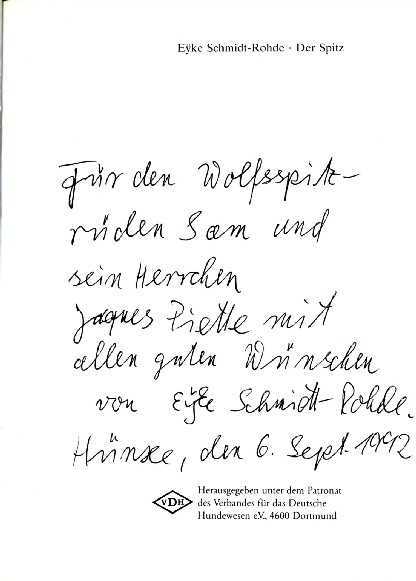 Eÿke Schmidt-Rohde · Der Spitz
Für den Wolfsspitz-
rüden Sam und
sein Herrchen
Jaques Piette mit
allen guten Wünschen
von Eÿke Schmidt-Rohde.
Hünxe, den 6. Sept. 1992
VDH
Herausgegeben unter dem Patronat
des Verbandes für das Deutsche
Hundewesen e.V., 4600 Dortmund